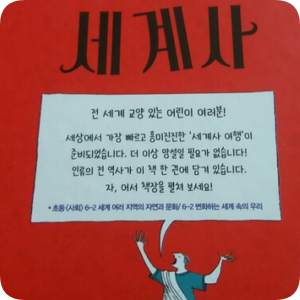 세계사
전 세계 교양 있는 어린이 여러분!
세상에서 가장 빠르고 흥미진진한 '세계사 여행'이
준비되었습니다. 더 이상 망설일 필요가 없습니다!
인류의 전 역사가 이 책 한 권에 담겨 있습니다.
자, 어서 책장을 펼쳐 보세요!
* 초등 <사회> 6-2 세계 여러 지역의 자연과 문화/ 6-2 변화하는 세계 속의 우리